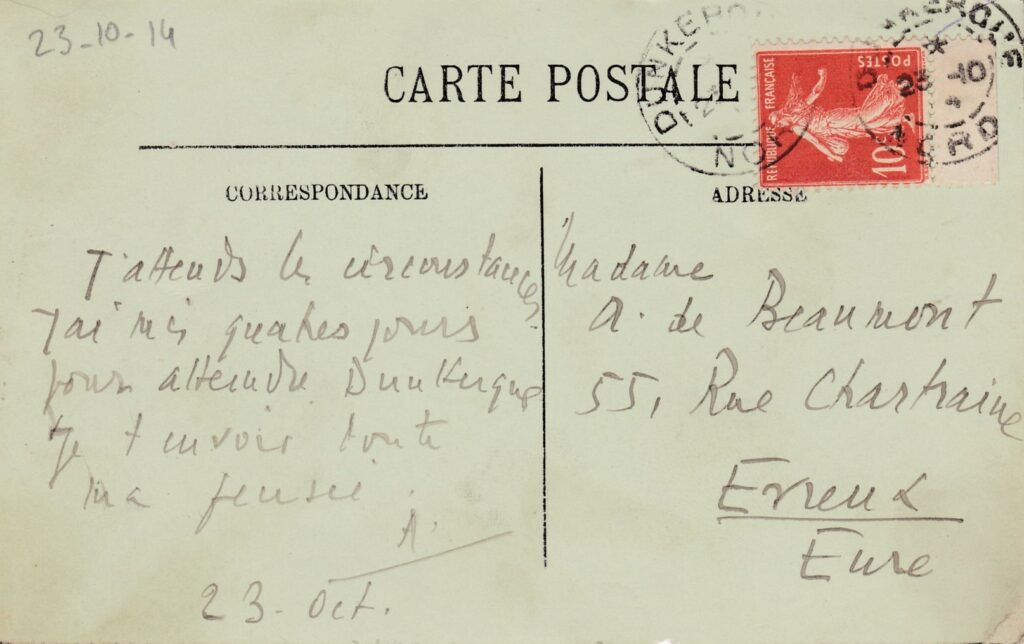 23-10-14
CARTE POSTALE
DUNKERQUE
NORD
RÉPUBLIQUE FRANÇAISE
POSTES
10c
DUNKERQUE
23 -10
NORD
CORRESPONDANCE
J'attends les circonstances.
J'ai mis quatres jours
pour atteindre Dunkerque
Je t'envoie toute
ma pensée.
A.
23 - Oct.
ADRESSE
Madame
A. de Beaumont
55, Rue Chartraine
Evreux
Eure